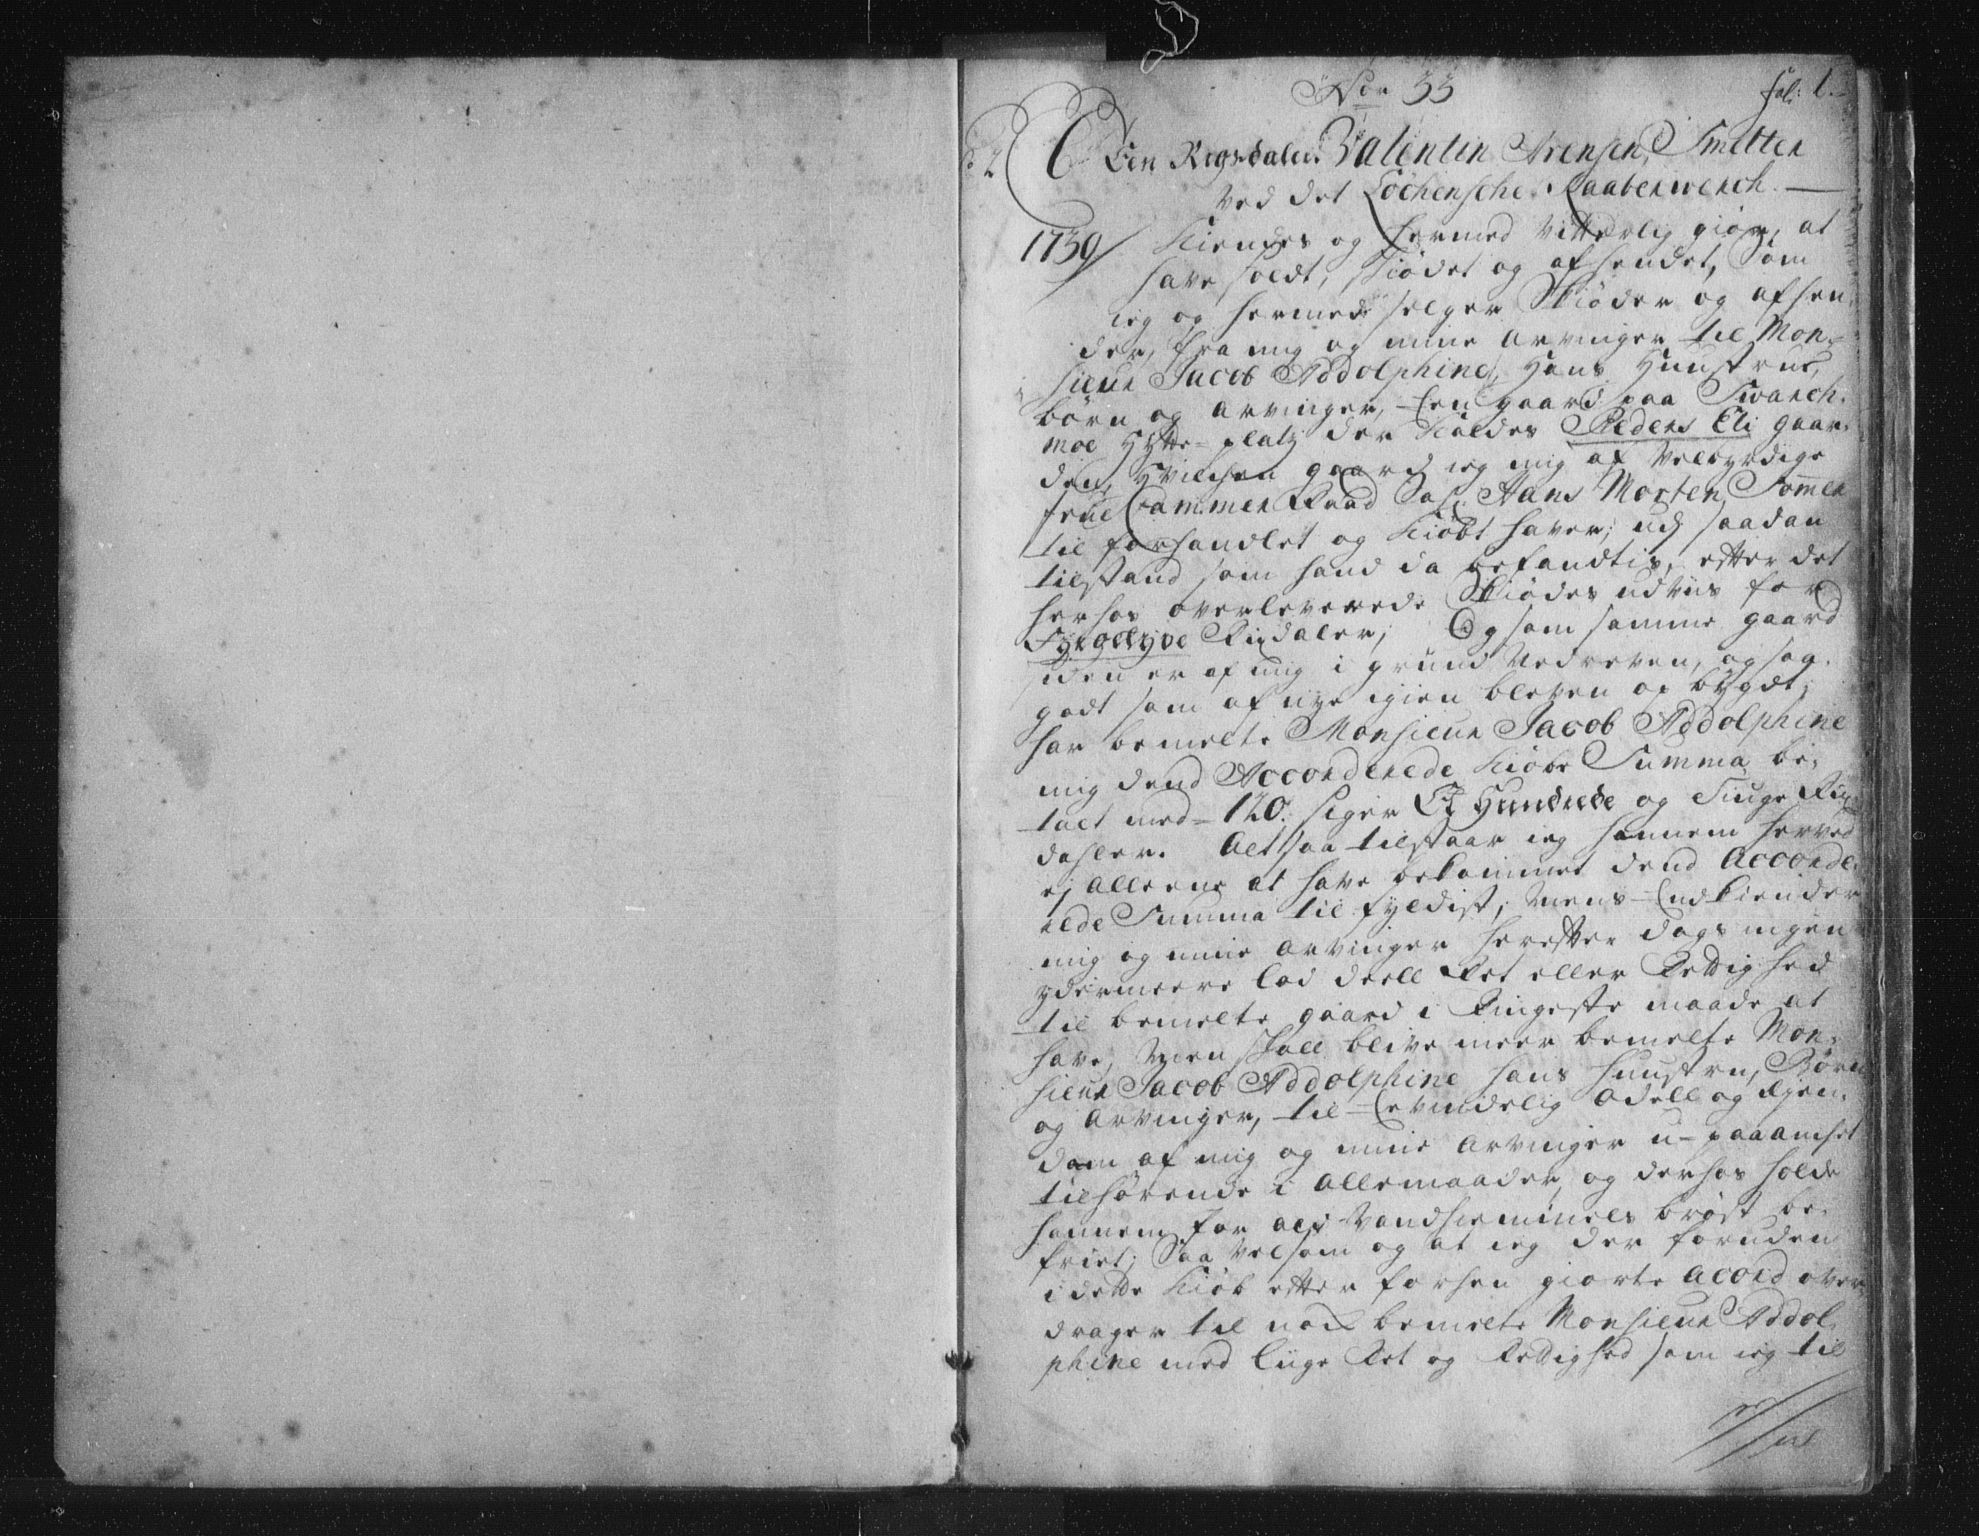 No 33
fol: 1.
Een Rigsdaler. Valentin Arensen, Smelter
Ved det Løchensche Kaaberwerch.
1739 Kiendes og hermed vitterlig giør, at
have soldt, skiødet og afhendet, Som
ieg og hermed selger Skiøder og afhen-
der, fra mig og mine Arvinger til Mon-
sieur Jacob Addolphine, Hans Huustrue,
børn og Arvinger, Een gaard paa Svarch-
moe Hytte-platz der Kaldes Peders Eli gaar-
den, Hvilchen gaard ieg mig af Velbyrdige
Frue Cammer Raad Sal. Hans Morten Sommer
til forhandlet og Kiøbt haver, udj saadan
tilstand som hand da befandtis, efter det
herhos overleverede Skiødes udviis for
Fyrgetyve Rixdaler; Og som samme gaard
siden er af mig i grund Nedreven, og saa
godt som af nye igien bleven op bygdt,
har bemelte Monsieur Jacob Addolphine
mig dend Accorderede Kiøbe Summa be-
talt med 120. siger Et Hundrede og Tiuge Rix
dahler. Altsaa tilstaar ieg hannem herved
ej alleene at have bekommet dend Accorde-
rede Summa til fyldist, mens Endkiender
mig og mine Arvinger herefter dags ingen
ydermeere Lod deell Ret eller Rettighed
til bemelte gaard i Ringeste maade at
have, Men skall blive meer bemelte Mon-
sieur Jacob Addolphine hans huustru, Børn
og Arvinger, til Evindelig Odell og Ejen-
dom af mig og mine Arvinger u-paaanchet
tilhørende i allemaader, og derhos holde
hannem for ald Vandhiemmels brøst be-
friet; Saa Velsom og at ieg der foruden
i dette Kiøb efter forhen giorte Acord over
drager til nox bemelte Monsieur Addol-
phine med liige Ret og Rettighed som ieg til